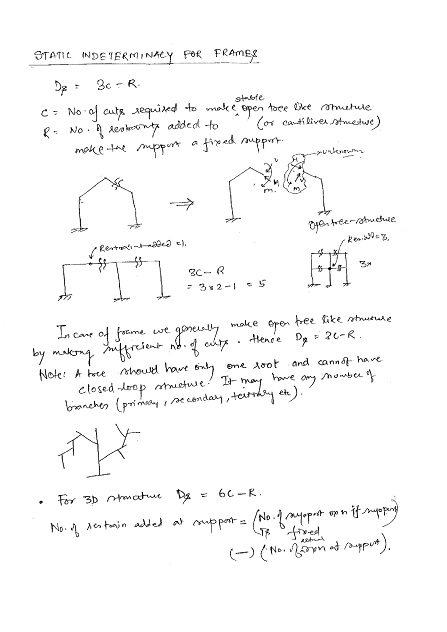 STATIC INDETERMINACY FOR FRAMES
Ds = 3C - R.
C = No. of cuts required to make stable open tree like structure
R = No. of restraints added to (or cantiliver structure)
make the support a fixed support.
unknowns
M
m.
M
Open tree-structure
Restraint added = 1.
3C - R
= 3x2-1 = 5
= 3,
In case of frame we generally make open tree like structure
by making sufficient no. of cuts. Hence Ds = 3C-R.
Note: A tree should have only one root and cannot have
closed-loop structure. It may have any number of
branches (primary, secondary, tertiary etc).
• For 3D structure Ds = 6C-R.
No. of restrain added at support = (No. of support rxn if support
is fixed)
(-) (No. of actual rxn at support).